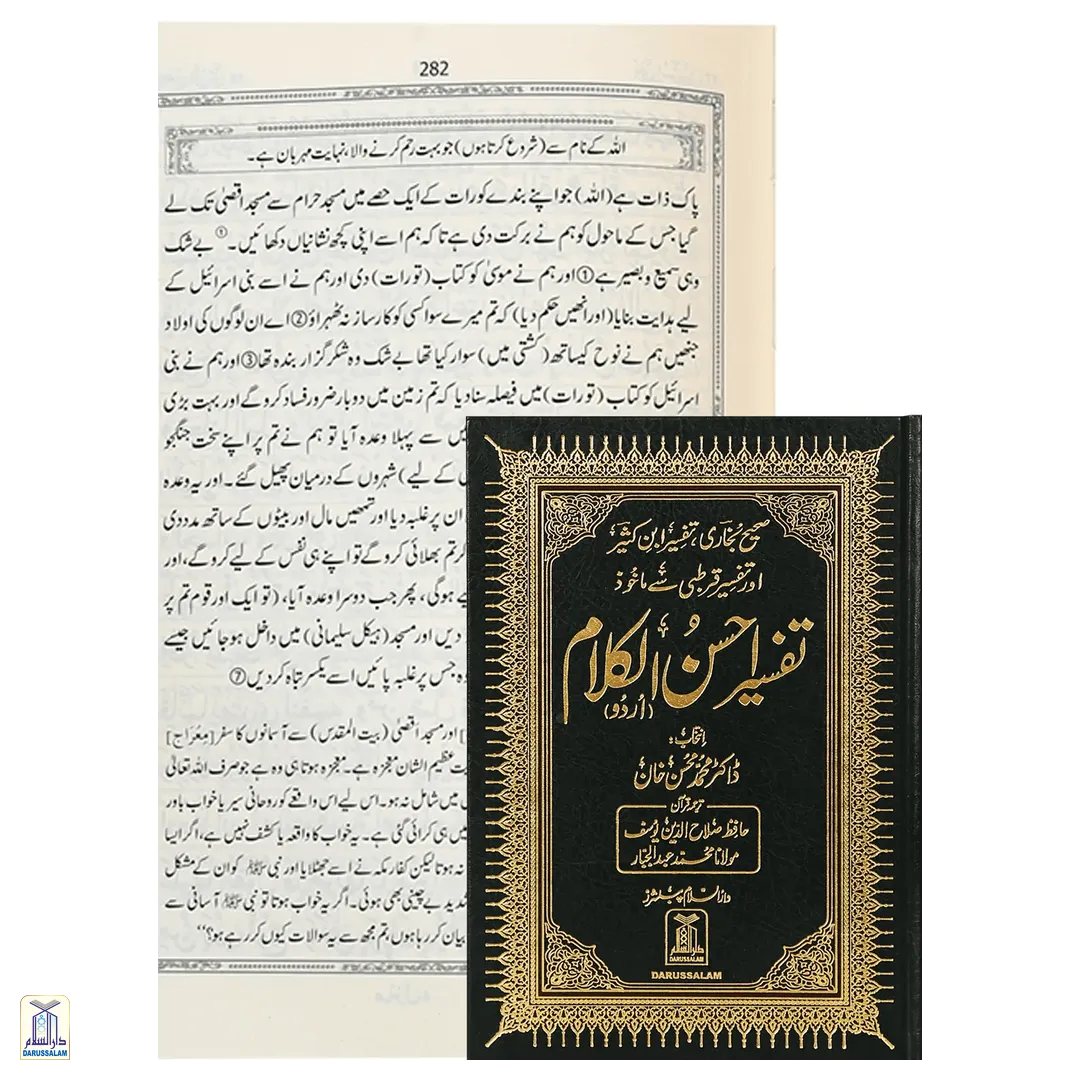 282
اللہ کے نام سے (شروع کرتا ہوں) جو بہت رحم کرنے والا، نہایت مہربان ہے۔
پاک ذات ہے (اللہ) جو اپنے بندے کو رات کے ایک حصے میں مسجد حرام سے مسجد اقصیٰ تک لے
گیا جس کے ماحول کو ہم نے برکت دی ہے تاکہ ہم اسے اپنی کچھ نشانیاں دکھائیں۔ ① بے شک
وہی سمیع و بصیر ہے ① اور ہم نے موسیٰ کو کتاب (تورات) دی اور ہم نے اسے بنی اسرائیل کے
لیے ہدایت بنایا (اور انھیں حکم دیا) کہ تم میرے سوا کسی کو کارساز نہ ٹھہراؤ ② اے ان لوگوں کی اولاد
جنھیں ہم نے نوح کیساتھ (کشتی میں) سوار کیا تھا بے شک وہ شکر گزار بندہ تھا ③ اور ہم نے بنی
اسرائیل کو کتاب (تورات) میں فیصلہ سنا دیا کہ تم زمین میں دو بار ضرور فساد کرو گے اور بہت بڑی
سے پہلا وعدہ آیا تو ہم نے تم پر اپنے سخت جنگجو
کے لیے) شہروں کے درمیان پھیل گئے۔ اور یہ وعدہ
ان پر غلبہ دیا اور تمھیں مال اور بیٹوں کے ساتھ مدد دی
تم بھلائی کرو گے تو اپنے ہی نفس کے لیے کرو گے، اور
ہوگی، پھر جب دوسرا وعدہ آیا، (تو ایک اور قوم تم پر
دیں اور مسجد (ہیکل سلیمانی) میں داخل ہو جائیں جیسے
جس پر غلبہ پائیں اسے یکسر تباہ کر دیں ⑦
اور مسجد اقصیٰ (بیت المقدس) سے آسمانوں کا سفر [معراج]
عظیم الشان معجزہ ہے۔ معجزہ ہوتا ہی وہ ہے جو صرف اللہ تعالیٰ
میں شامل نہ ہو۔ اس لیے اس واقعے کو روحانی سیر یا خواب باور
ہی کرائی گئی ہے۔ یہ خواب کا واقعہ یا کشف نہیں ہے، اگر ایسا
نہ ہوتا لیکن کفار مکہ نے اسے جھٹلایا اور نبی ﷺ کو ان کے مشکل
شدید بے چینی بھی ہوئی۔ اگر یہ خواب ہوتا تو نبی ﷺ آسانی سے
بیان کر رہا ہوں، تم مجھ سے یہ سوالات کیوں کر رہے ہو؟‘‘
صحیح بخاری، تفسیر ابن کثیر
اور تفسیر قرطبی سے ماخوذ
تفسیر احسن الکلام
(اردو)
انتخاب:
ڈاکٹر محمد محسن خان
ترجمہ قرآن
حافظ صلاح الدین یوسف
مولانا محمد عبدالجبار
دارالسلام پبلشرز
دارالسلام
DARUSSALAM
DARUSSALAM
دارالسلام
DARUSSALAM